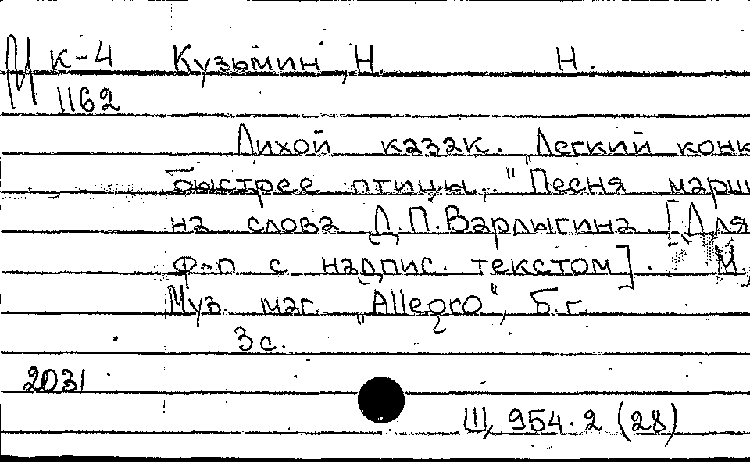 М К-4 Кузьмин, Н. Н.
1162
Лихой казак. Легкий конь
быстрее птицы. "Песня марш
на слова Д.П. Варлыгина [Для
ф-п с надпис. текстом]. М.,
Муз. маг. "Allegro", б.г.
3 с.
2031
Ш, 954.2 (28)